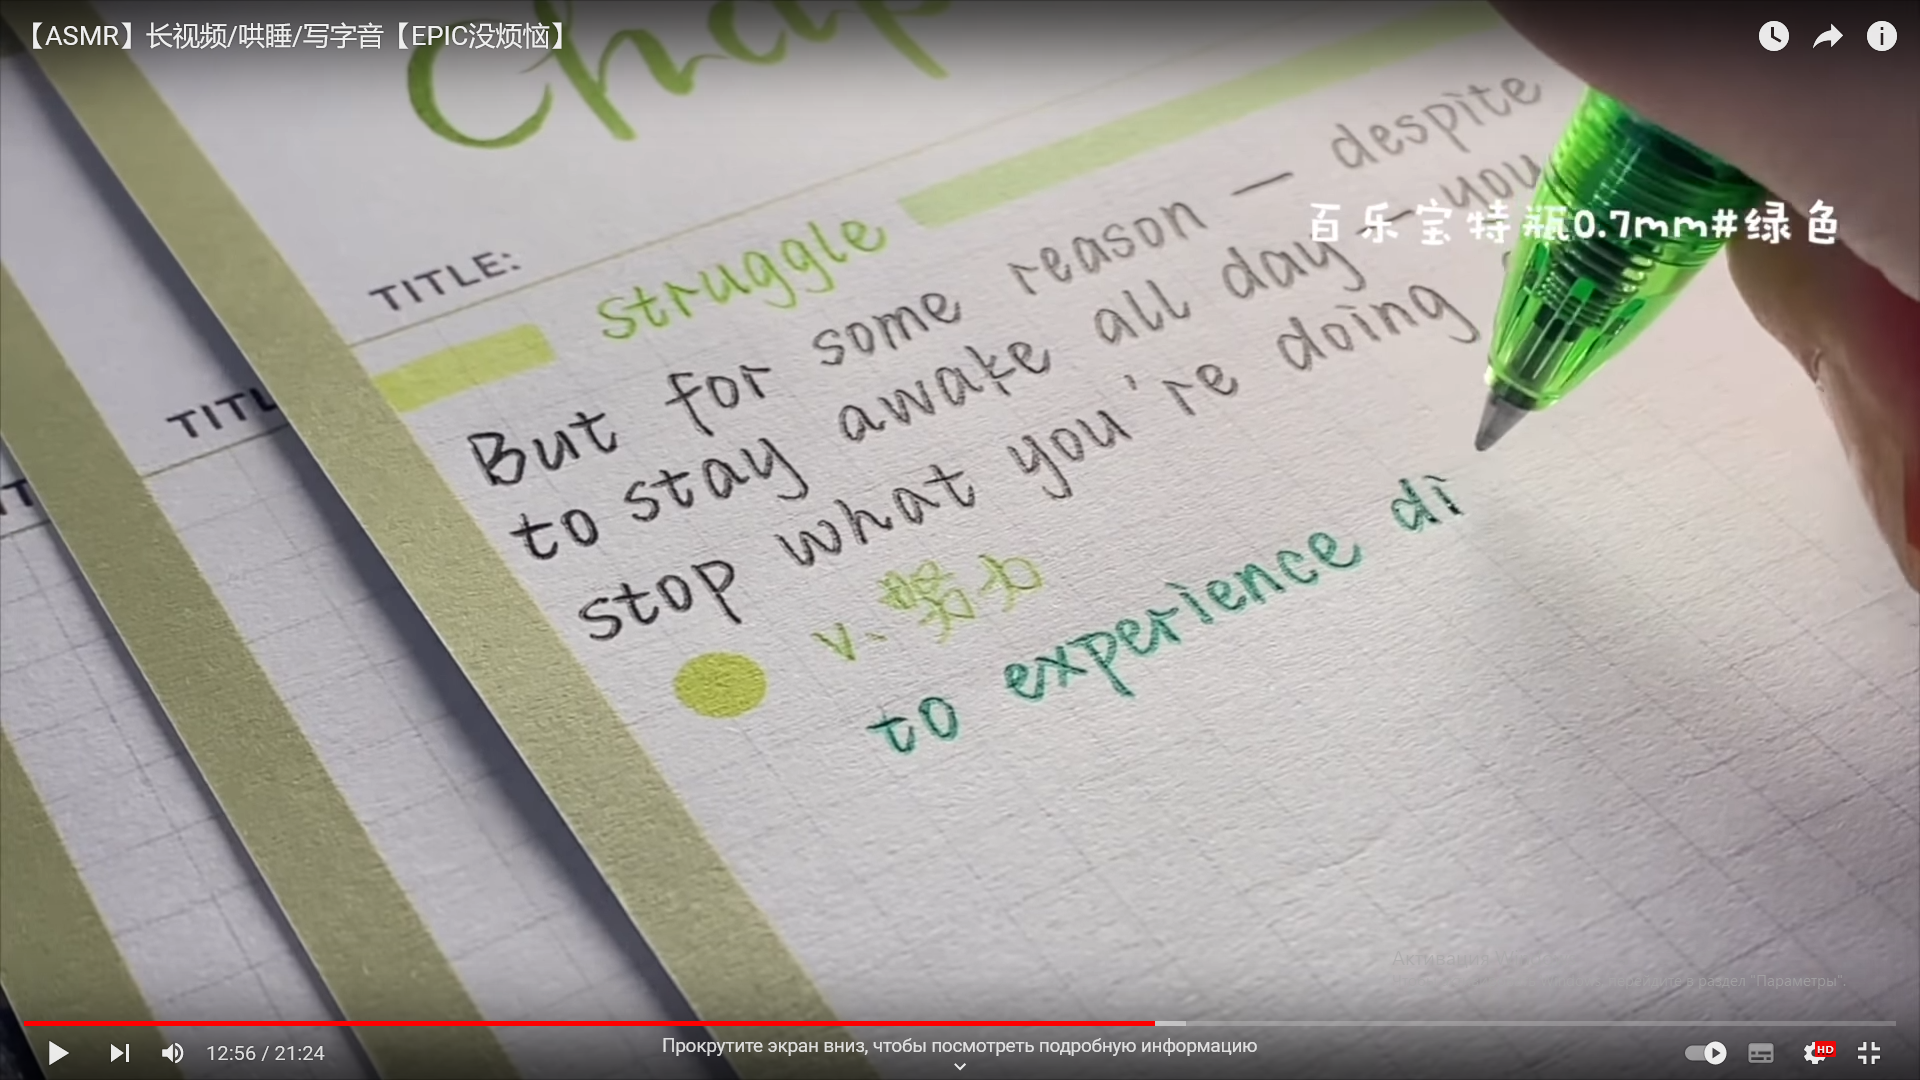 【ASMR】长视频/哄睡/写字音【EPIC没烦恼】
Chap
TITLE:
struggle
百乐宝特瓶0.7mm#绿色
But for some reason — despite
to stay awake all day — you
stop what you're doing
v. 努力
to experience di
TITL
12:56 / 21:24
Прокрутите экран вниз, чтобы посмотреть подробную информацию
HD